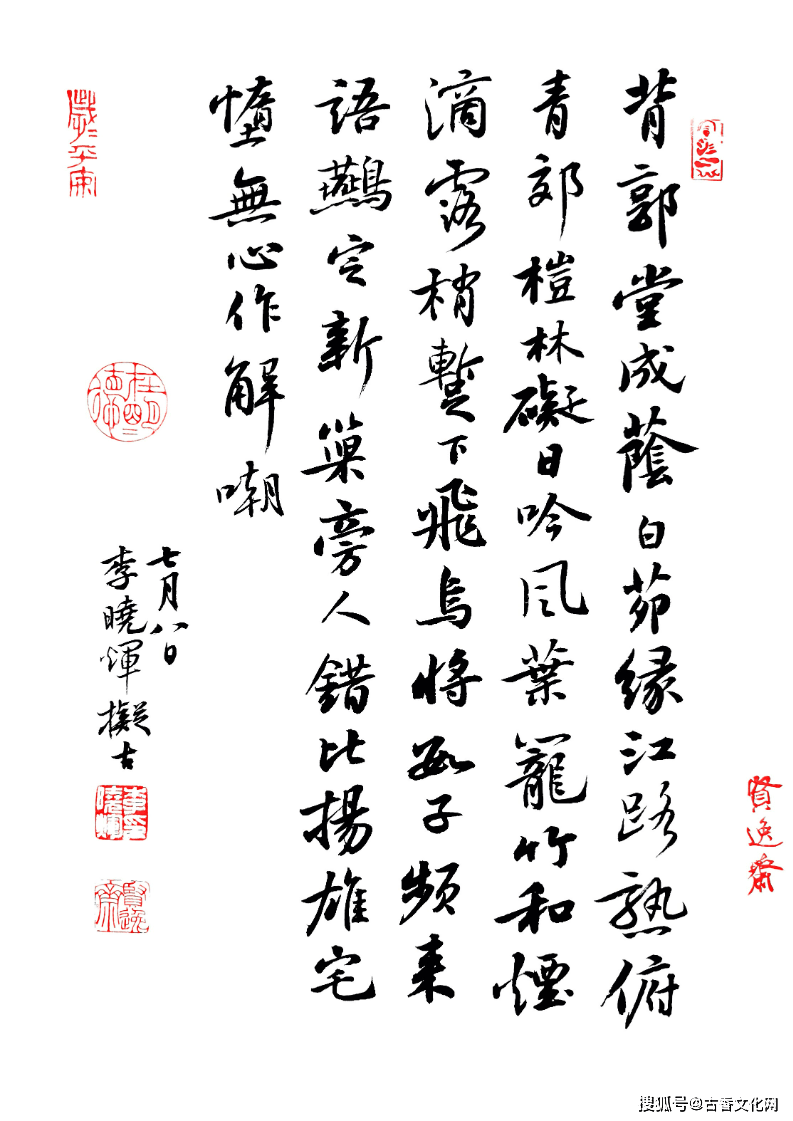 背郭堂成蔭白茆緣江路熟俯
青郊榿林礙日吟風葉籠竹和煙
滴露梢暫下飛烏將數子頻來
語鷰定新巢旁人錯比揚雄宅
惰無心作解嘲
七月八日
李曉煇擬古
賢逸齋
賢逸齋
搜狐号@古香文化网